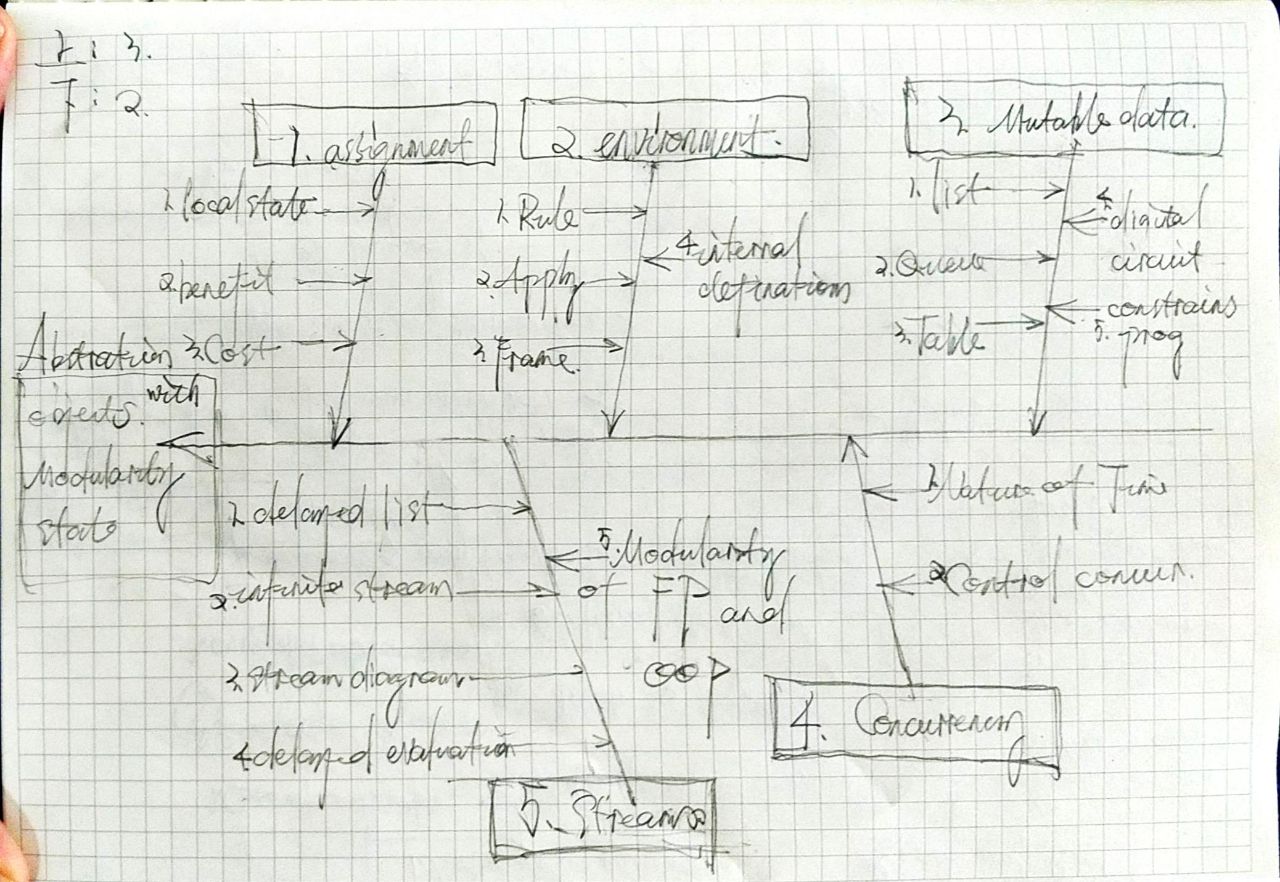 上: 3.
下: 2.
1. assignment
1. local state
2. benefit
3. Cost
2. environment.
1. Rule
2. Apply
3. Frame.
4. internal
definations
3. Mutable data.
1. list
2. Queue
3. Table
4. digital
circuit
constrains
5. prog
Abstration
with
objects.
Modularity
state
1. delayed list
2. infinite stream
3. stream diagram
4. delayed evaluation
5. Modularity
of FP and
OOP
5. Streams
1. Nature of Time
2. Control concurr.
4. Concurrency